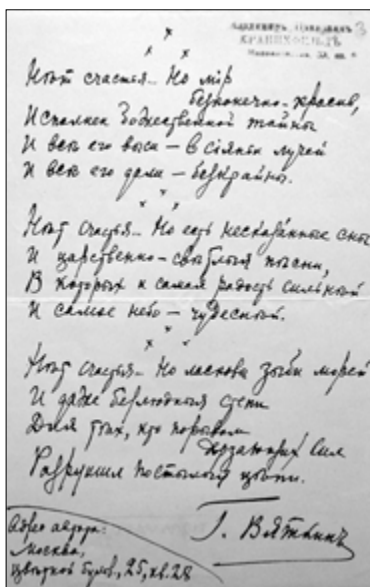 КРАНИХФЕЛЬДЪ
3
Нѣт счастья... Но мір
безконечно-красив,
Исполнен божественной тайны
И всѣ его выси – в сіяньи лучей
И всѣ его дали – безкрайны.
Нѣт счастья... Но есть несказанные сны
И царственно-свѣтлыя пѣсни,
В которых и самая радость сильнѣй
И самое небо – чудеснѣй.
Нѣт счастья... Но ласковы зыби морей
И даже безлюдныя степи
Для тѣх, кто порывом
дерзающих сил
Разрушил постылыя цѣпи.
Г. Вяткинъ
Адрес автора:
Москва,
Цвѣтной бульв., 25, кв. 28